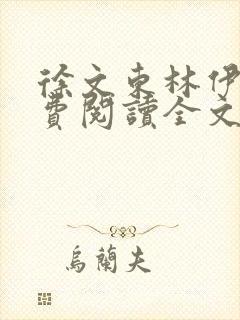 徐文東林伊
費閱讀全文
烏蘭夫